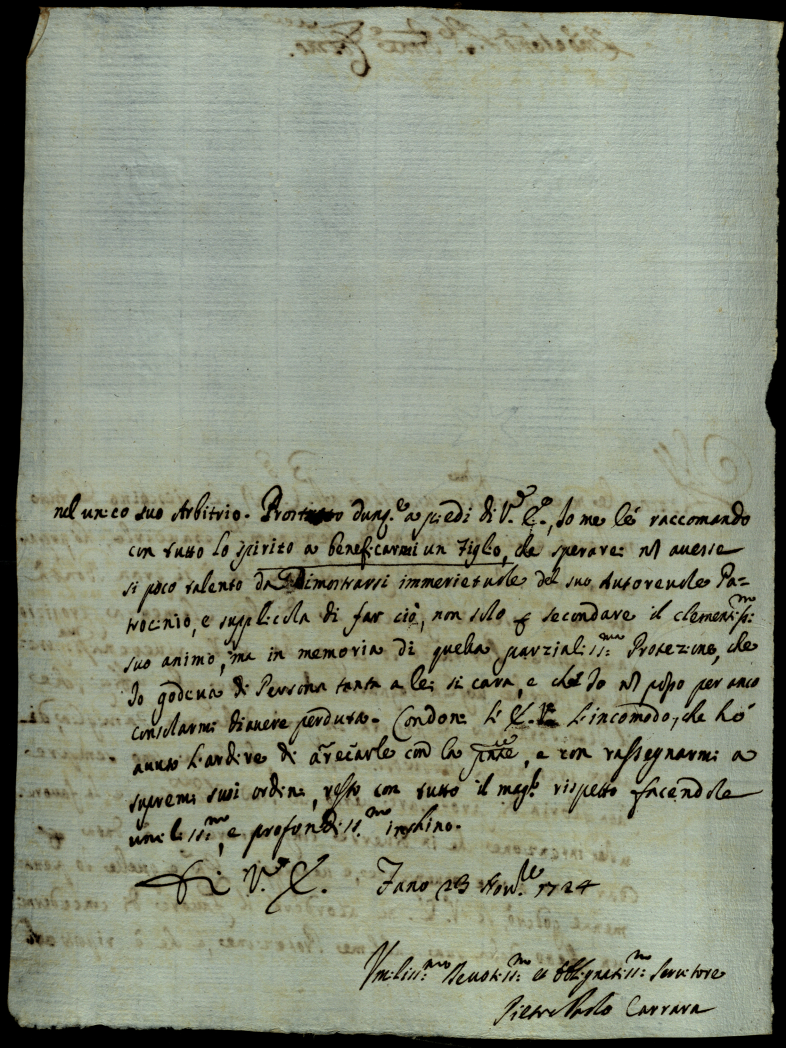 nel unico suo Arbitrio. Prostrato dunq.e a piedi di V.a E., Io me le raccomando
con tutto lo spirito a beneficarmi un Figlio, che sperarei nō auesse
si poco talento da Dimostrarsi immeriteuole del suo Autoreuole Pa=
trocinio, e supplicola di far ciò, non solo p secondare il clementiss:mo
suo animo, ma in memoria di quella parzialiss:ma Protezione, che
Io godeua di Persona tanta a lei si cara, e che Io nō posso per anco
consolarmi d'auere perduta. Condoni l'E. V. l'incomodo, che hò
auuto l'ardire di arrecarle con la pnte, e con rassegnarmi a
supremi suoi ordini, resto con tutto il magr. rispetto facendole
umiliss:mo, e profondiss.mo inchino.
Di V.a E. Fano 23 Nov.bre 1724
Vmiliss:mo Deuotiss:mo ed Obbligatiss:mo Seruitore
Pietro Paolo Carrara